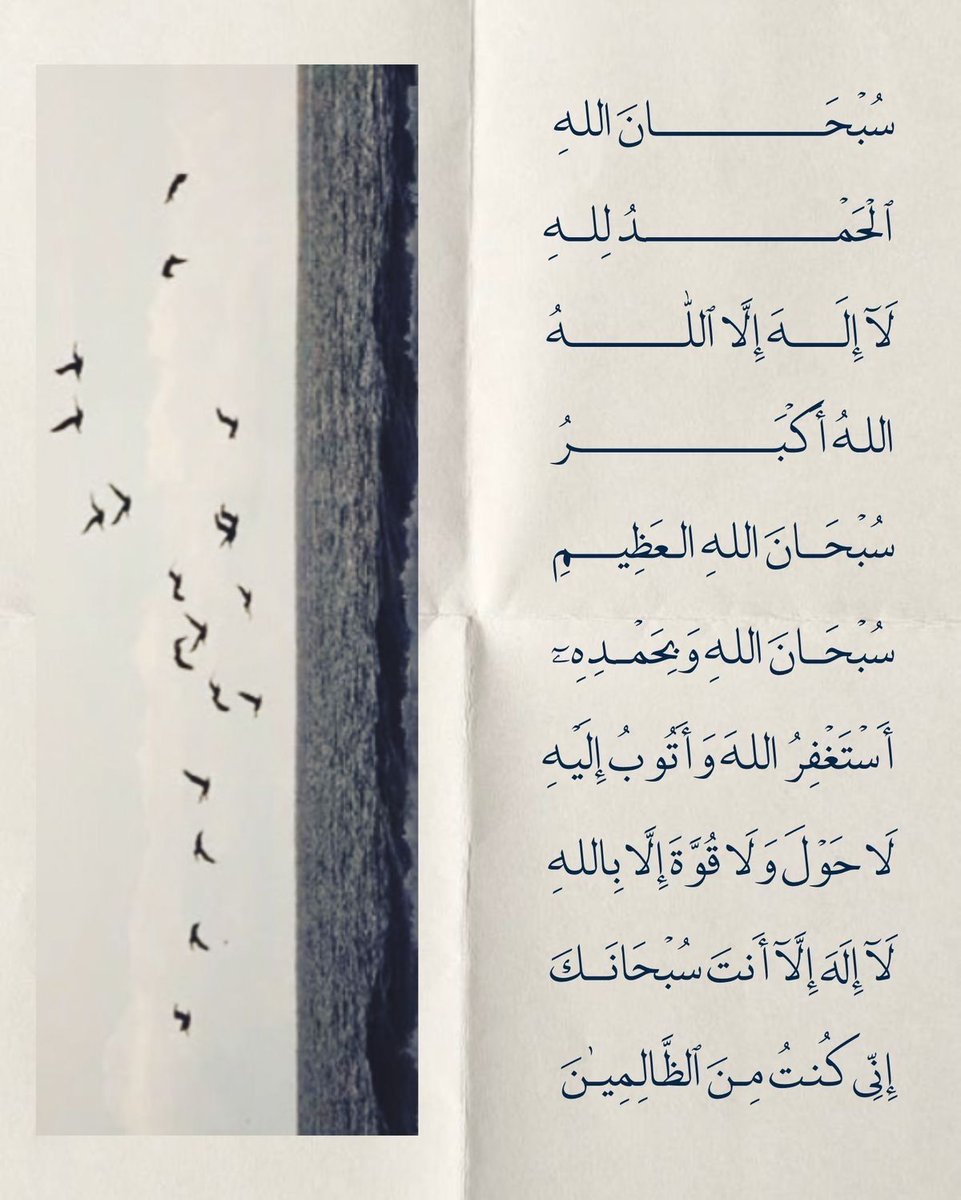 سُبْحَانَ اللهِ
ٱلْحَمْدُ لِلهِ
لَآ إِلَهَ إِلَّا ٱللّٰهُ
اللهُ أَكْبَرُ
سُبْحَانَ اللهِ العَظِيمِ
سُبْحَانَ اللهِ وَبِحَمْدِهِۦ
أَسْتَغْفِرُ اللهَ وَأَتُوبُ إِلَيْهِ
لَا حَوْلَ وَلَا قُوَّةَ إِلَّا بِاللهِ
لَآ إِلَهَ إِلَّآ أَنتَ سُبْحَانَكَ
إِنِّي كُنتُ مِنَ ٱلظَّالِمِينَ